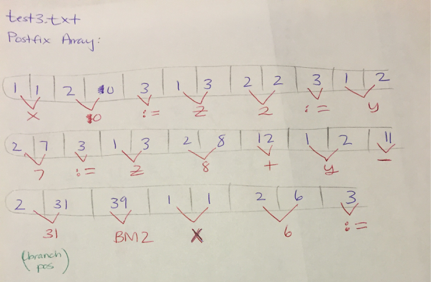 test3.txt
Postfix Array:
1 1 2 10 3 1 3 2 2 3 1 2
x 10 := z 2 := y
2 7 3 1 3 2 8 12 1 2 11
7 := z 8 + y −
2 31 39 1 1 2 6 3
31 BMZ X 6 :=
(branch
pos)